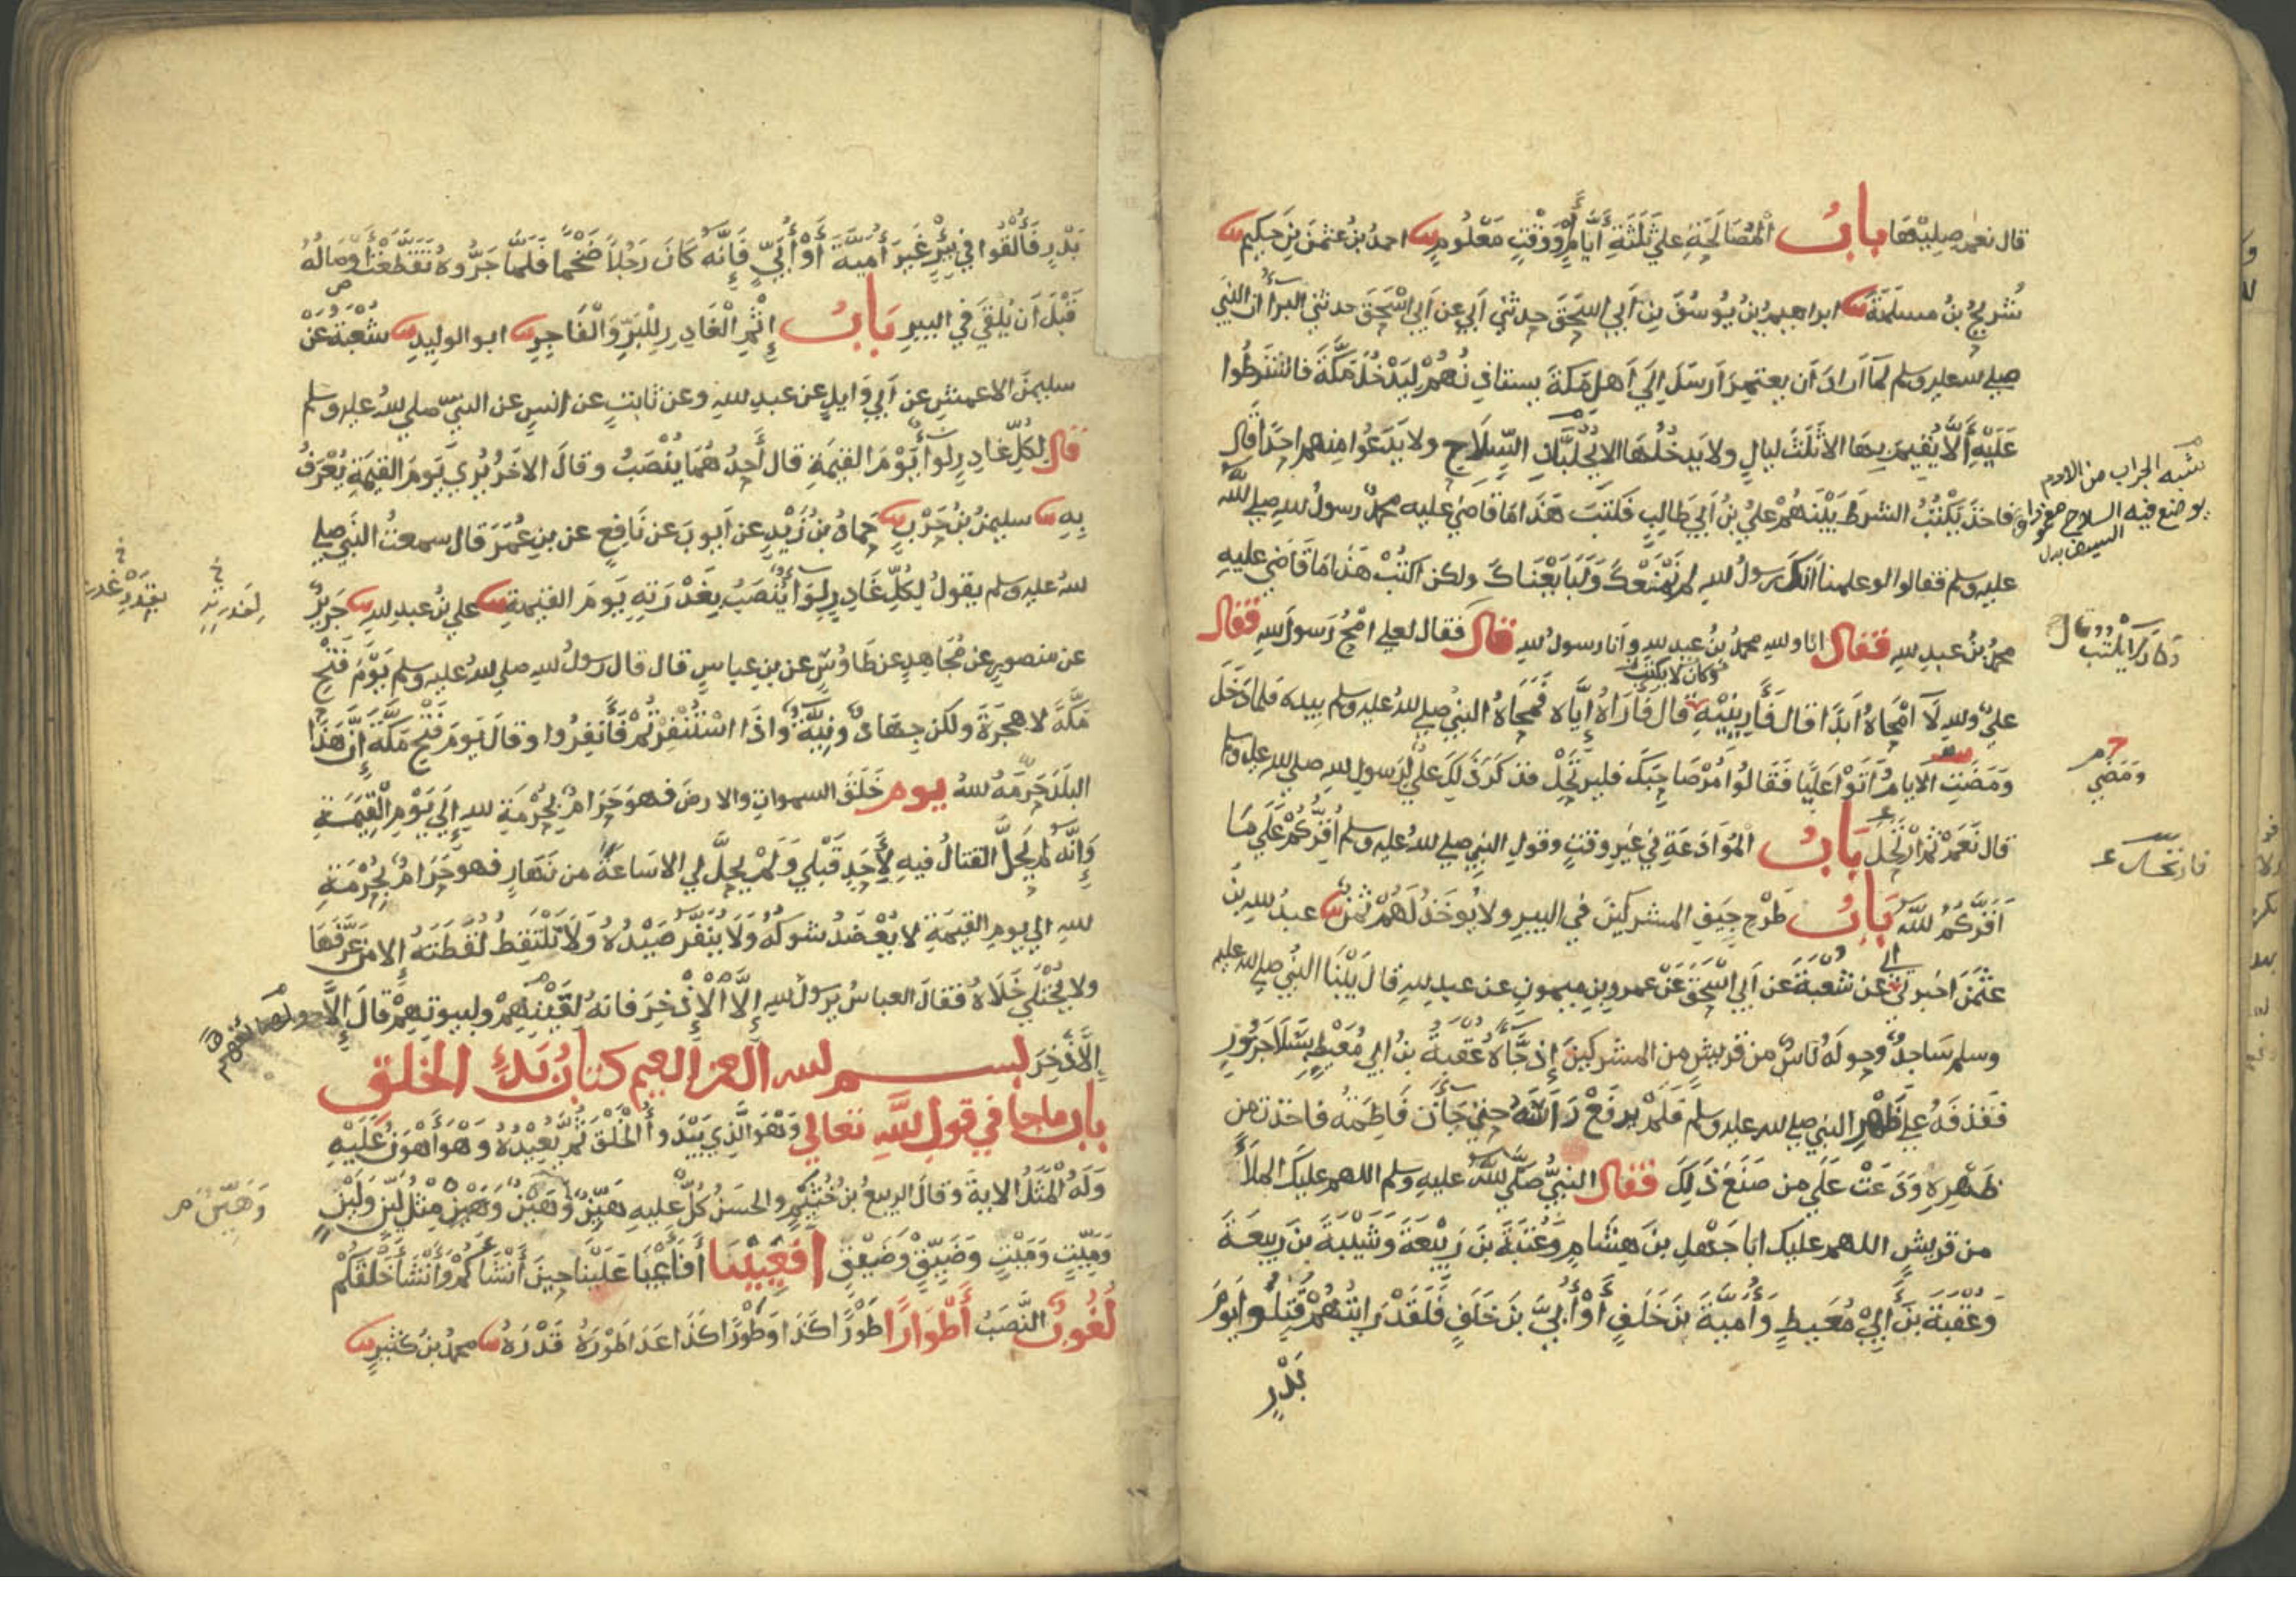 قال نعم صليها بابُ المُصَالَحَةِ علي ثَلَثَةِ أَيَّامٍ أَوْ وَقْتٍ مَعْلُومٍ احمدُ بنُ عثمنَ بنِ حكيمٍ
شُريحُ بنُ مسلمَةَ ابراهيمُ بنُ يوسفَ بنِ أبي اسحقَ حدثني أبي عن أبي اسحقَ حدثني البرآءُ ان النبي
صلي لله عليه وسلم لمّآ ارادَ أن يعتمرَ ارسلَ الي أهل مكةَ يستاذنُهُمْ ليَدْخُلَ مَكَّةَ فاشترطُوا
عَلَيْهِ أَلَّا يُقيمَ بِهَا الا ثَلَثَ ليالٍ ولا يدخُلُهَا الا بِجُلُبَّانِ السِّلَاحِ ولا يَدعُوا منهم احدًا قال
فاخذَ يَكْتُبُ الشرطَ بَيْنَهُمْ عليُّ بنُ أبي طالبٍ فكتبَ هَذَا مَا قاضي عليه محمدٌ رسولُ للهِ صلي للَّهُ
عليه وسلم فقالوا لو علمنا أنك رسولُ للهِ لم نَمْنَعْكَ ولَبَايَعْنَاكَ ولكن اكتُبْ هَذَا مَا قَاضَي عليهِ
محمدُ بنُ عبدِ للهِ فقال انا وللهِ محمدُ بنُ عبدِ للهِ وأنا رسولُ للهِ قال فقال لعلي امْحُ رَسولَ للهِ فقال
وكان لا يكتب
عليٌّ وللهِ لَا أمْحَاهُ أبدًا قال فَأَرِينِيْهِ قال فأَرَاهُ إيَّاه فَمَحَاهُ النبيُّ صلي للهُ عليه وسلم بيده فلما دَخَلَ
ومَضَتِ الايامُ أتَوْا عليًّا فَقَالُوا مُرْ صَاحِبَكَ فليرتَحِلْ فذكَرَ ذلكَ عليٌّ لِرَسولِ للهِ صلي للهُ عليه وسلم
قال نَعَمْ ثم ارْتَحَلَ بَابُ المُوَادَعَةِ في غيرِ وقتٍ وقولِ النبي صلي للهُ عليه وسلم أُقِرُّكُمْ عَلَي مَا
أَقَرَّكُمُ للَّهُ بَابُ طَرْحِ جِيَفِ المشركينَ في البيرِ ولا يُوخَذُ لَهُمْ ثمنٌ عبدُ للهِ بنُ
عثمنَ اخبرني أبي عن شعبةَ عن أبي اسحقَ عن عمروِ بنِ ميمونٍ عن عبدِ للهِ قالَ بَيْنَا النبيُّ صلي لله عليه
وسلم سَاجِدٌ وحولَهُ ناسٌ من قريشٍ من المشركينَ إذ جآءَهُ عُقبةُ بنُ أبي مُعَيْطٍ بِسَلَا جَزُورٍ
فقذفَهُ علي ظَهْرِ النبي صلي لله عليه وسلم فَلَمْ يرفعْ رَاسَهُ حتي جَأَتْ فاطِمَةُ فاخذتْ من
ظَهْرِهِ وَدَعَتْ عَلَي من صَنَعَ ذَلِكَ فقال النبيُّ صَلَّي للَّهُ عليهِ وسلم اللهم عليك الملأَ
من قريشٍ اللهم عليك ابا جَهْلِ بنَ هِشَامٍ وَعُتْبَةَ بنَ رَبِيْعَةَ وَشَيْبَةَ بنَ ربيعَةَ
وَعُقْبَةَ بنَ أَبِيْ مُعَيطٍ وَأُمَيَّةَ بنَ خَلَفٍ أَوْ أُبَيَّ بنَ خَلَفٍ فَلَقَدْ رَايتُهُمْ قُتِلُوا يَوْمَ
بَدْرٍ
شبه الجراب من الادم
يوضع فيه السلاح مغمودا
السيف
ومَضَي
فارتحل
بَدْرٍ فَأُلْقُوا في بِئْرٍ غَيرَ أميةَ أَوْ أُبَيٍّ فَإِنَّهُ كَانَ رَجُلاً ضَخْمًا فَلَمَّا جَرُّوهُ تَقَطَّعَتْ أَوْصَالُهُ
قَبْلَ أن يُلقَي في البيرِ بَابُ إِثْمِ الْغَادِرِ لِلْبَرِّ وَالْفَاجِرِ ابو الوليدِ شُعْبَةُ عَنْ
سليمنَ الاعمشِ عن أبي وَايلٍ عن عبدِ للهِ وعن ثابتٍ عن انسٍ عن النبيّ صلي للهُ عليه وسلم
قال لِكُلِّ غادِرٍ لوآءٌ يَوْمَ القيمةِ قال أَحدُهُمَا يُنْصَبُ وقال الاخَرُ يُرَي يَومَ القيمَةِ يُعْرَفُ
بِهِ سليمنُ بنُ حَرْبٍ حَمادُ بنُ زَيْدٍ عن أيوبَ عن نافعٍ عن بنِ عُمَرَ قال سمعتُ النَّبِي صلي
للهُ عليه وسلم يقولُ لِكُلِّ غَادِرٍ لِوَآءٌ يُنْصَبُ بِغَدْرَتِهِ يَومَ القيمةِ علي بنُ عبدِ للهِ جَرِيرٌ
عن منصورٍ عن مُجَاهِدٍ عن طَاوُسٍ عن بنِ عباسٍ قال قال رسولُ للهِ صلي للهُ عليه وسلم يَوْمَ فَتْحِ
مَكَّةَ لا هجرَةَ ولكن جِهَادٌ ونِيَّةٌ واذَا اسْتُنْفِرْتُمْ فَأنفِرُوا وقال يَومَ فَتْحِ مكَّةَ إنَّ هَذَا
البلَدَ حَرَّمَهُ للهُ يوم خَلَقَ السمواتِ والارضَ فهوَ حَرَامٌ بِحُرْمَةِ للهِ إلَي يَوْمِ الْقِيَمَةِ
وَإِنَّهُ لم يَحِلَّ القتالُ فيهِ لِأَحَدٍ قَبْلِي وَلَمْ يحِلَّ لِي الا سَاعَةً من نَهَارٍ فهو حَرَامٌ بِحُرْمَةِ
للهِ الي يومِ القيمَةِ لا يُعْضَدُ شوكُهُ وَلَا يُنَفَّرُ صَيْدُهُ وَلَا يَلْتَقِطُ لُقَطَتَهُ إلا من عَرَّفَهَا
ولا يُخْتَلَي خَلَاهُ فقال العباسُ يرسولَ للهِ إلَّا الْإِذْخِرَ فانهُ لِقَيْنِهِمْ ولبيوتِهِمْ قال إلَّا
الاذْخِرَ بسم لله الرحمن الرحيم كتابُ بَدْءِ الخلق
باب ما جا في قول للَّهِ تعالي وَهُوَ الَّذِي يَبْدَوأُ الْخَلْقَ ثُمَّ يُعِيْدُهُ وَهْوَ أَهْوَنُ عَلَيْهِ
وَلَهُ الْمَثَلُ الاية وقال الربيعُ بنُ خُثَيْمٍ والحسَنُ كُلٌّ عليهِ هَيِّنٌ وَهَيْنٌ وَهَيِّنٌ مِثْلُ لَيِّنٍ وَلَيْنٍ
وَمَيِّتٍ وَمَيْتٍ وَضَيِّقٍ وَضَيْقٍ أفَعَيِينَا أَفَأَعْيَا عَلَيْنَا حِينَ أَنْشَأَكُمْ وَأَنْشَأَ خَلْقَكُمْ
لُغُوبٌ النَّصَبُ أَطْوَارًا طَوْرًا كَذَا وَطَوْرًا كَذَا عَدَا طَوْرَهُ قَدْرَهُ محمدُ بنُ كثيرٍ
لغدرته
بغدرته
وَهَيِّنٌ